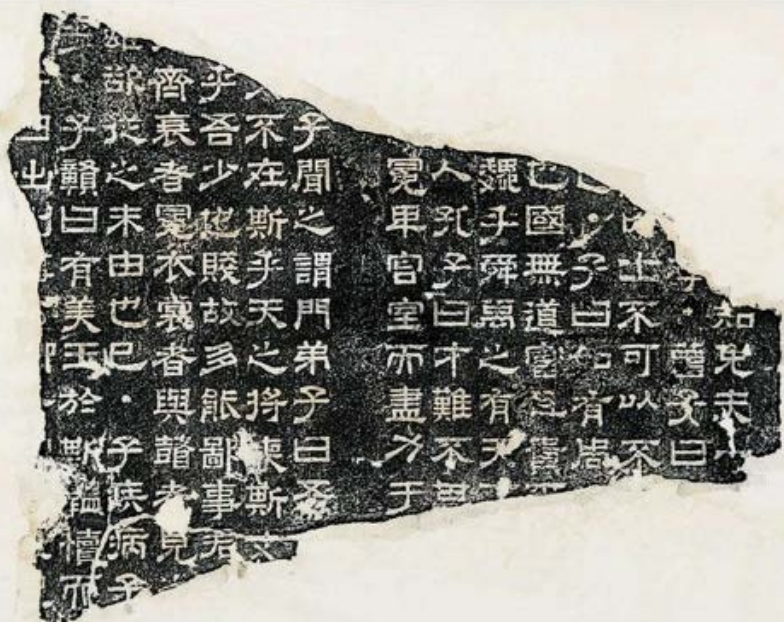 知免夫
子·曾子曰
曰士不可以不
已·子曰如有周
也國無道富且貴
魏乎舜禹之有天
人孔子曰才難不其
冕卑宮室而盡力于
子聞之謂門弟子曰吾
不在斯乎天之將喪斯文
乎吾少也賤故多能鄙事君
齊衰者冕衣裳者與瞽者見
雖欲從之末由也已·子疾病子
·子贛曰有美玉於斯韞櫝而
曰出則事